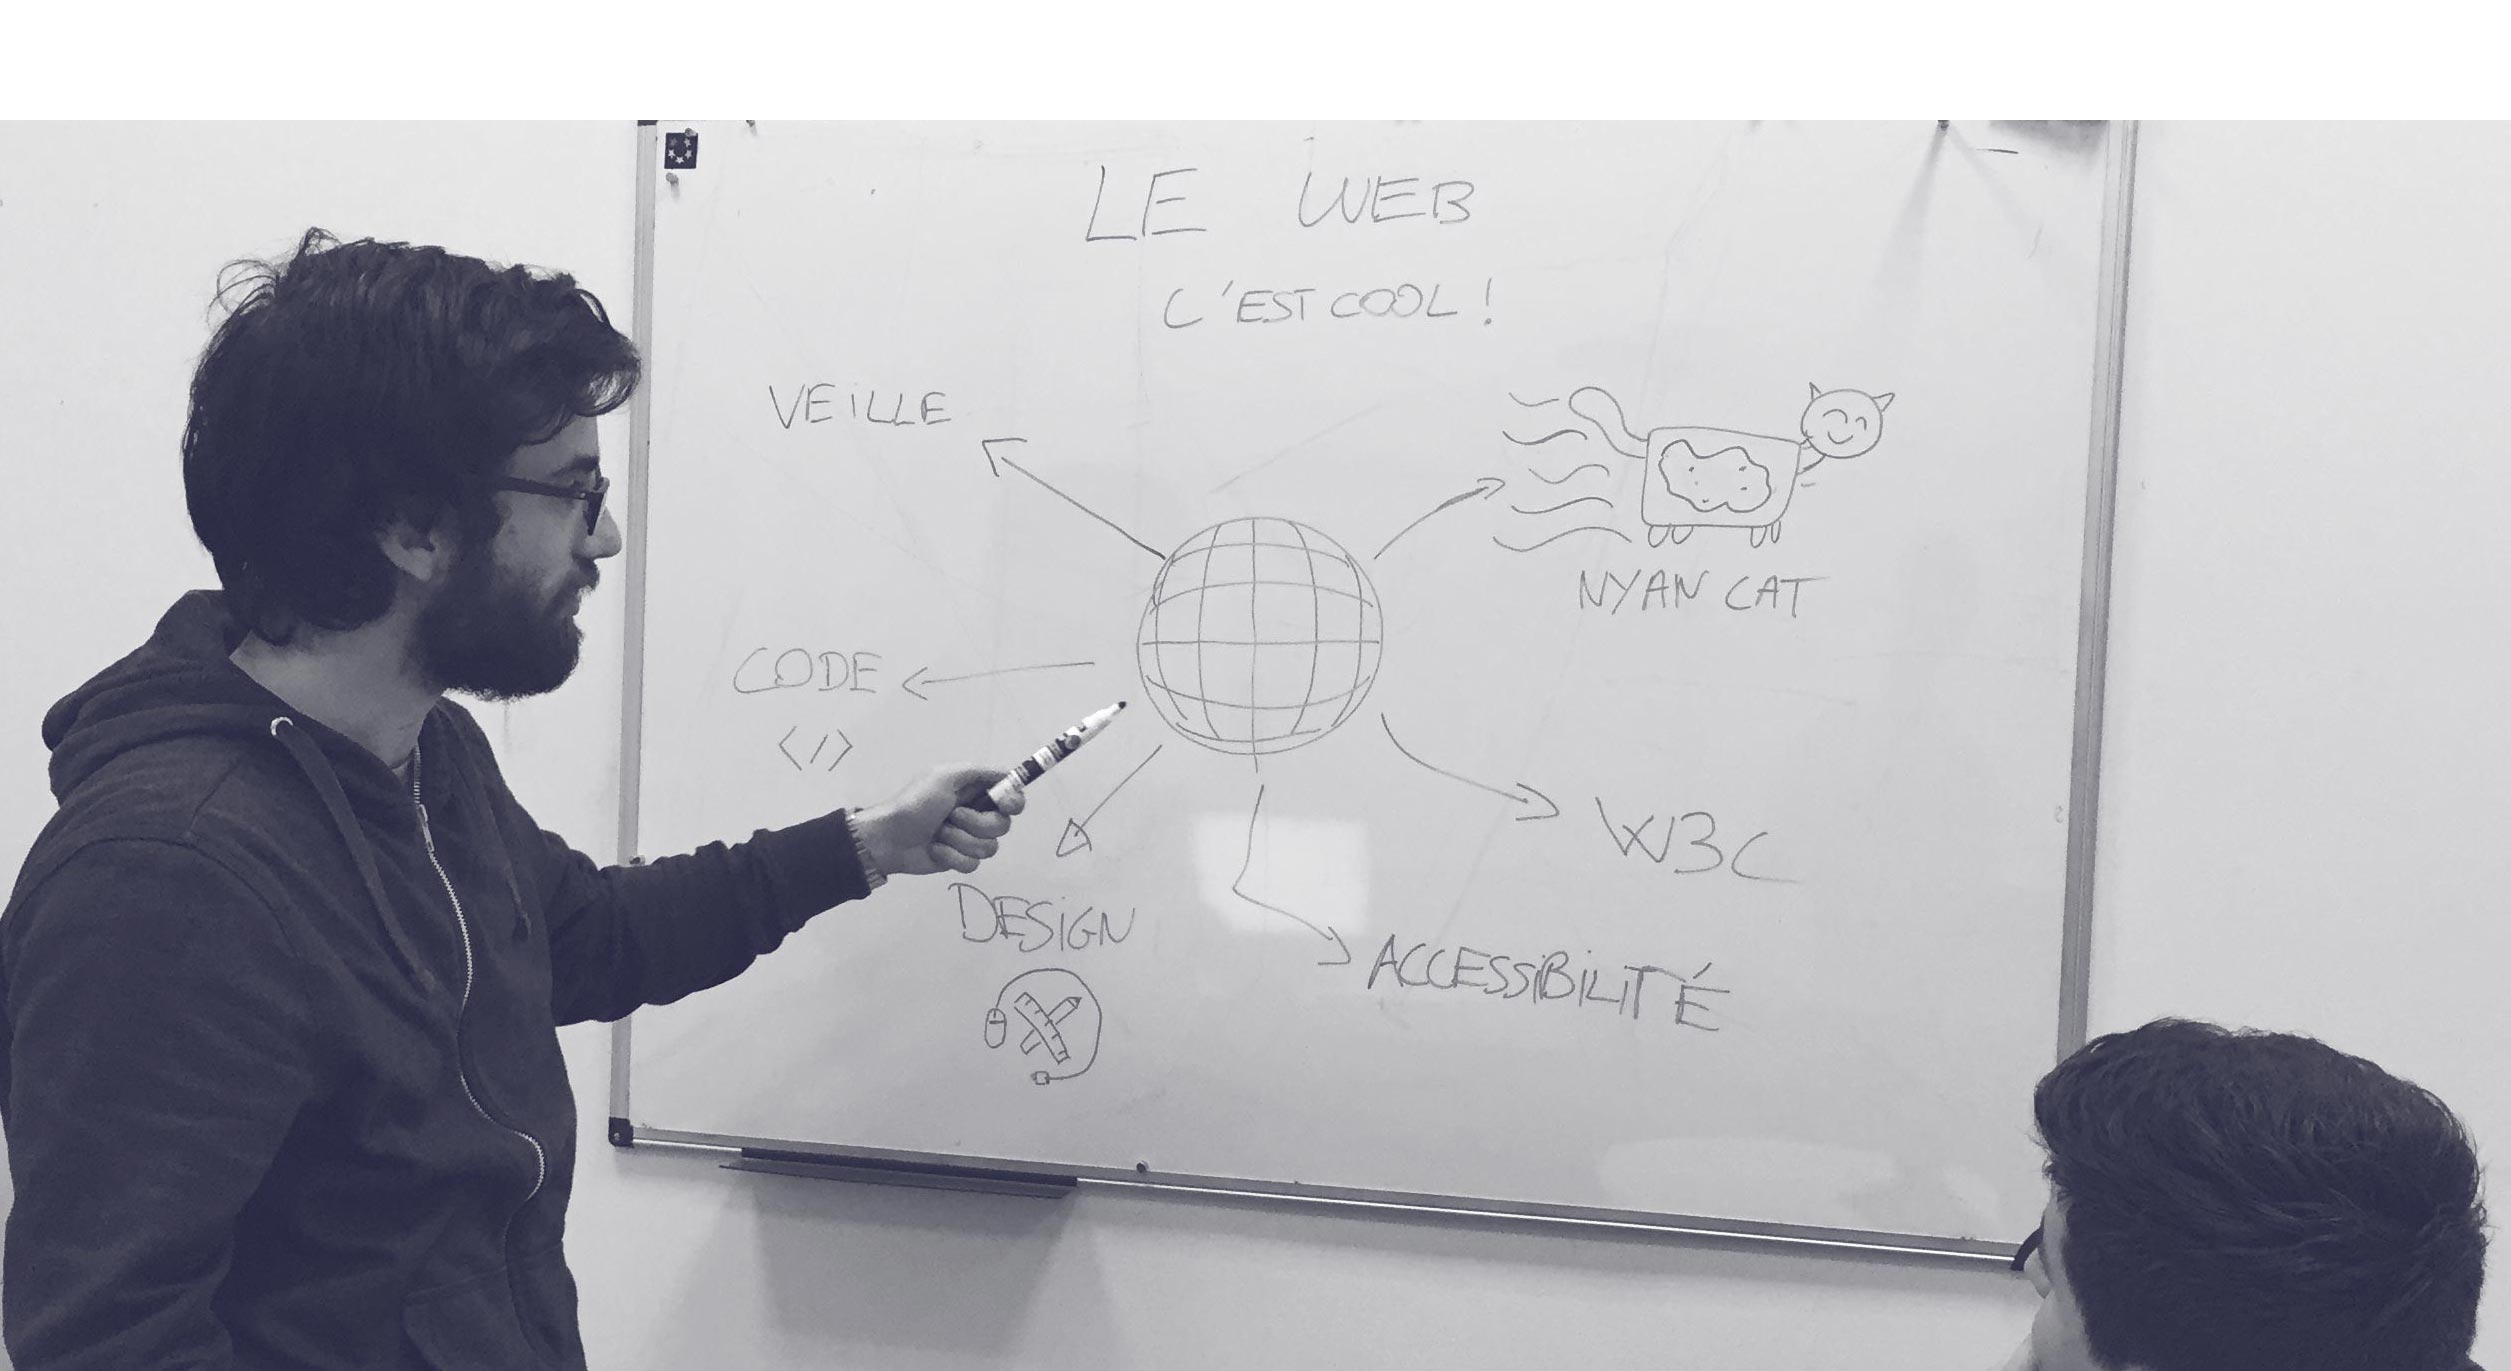 LE WEB
C'EST COOL !
VEILLE
NYAN CAT
CODE
</>
W3C
DESIGN
ACCESSIBILITÉ